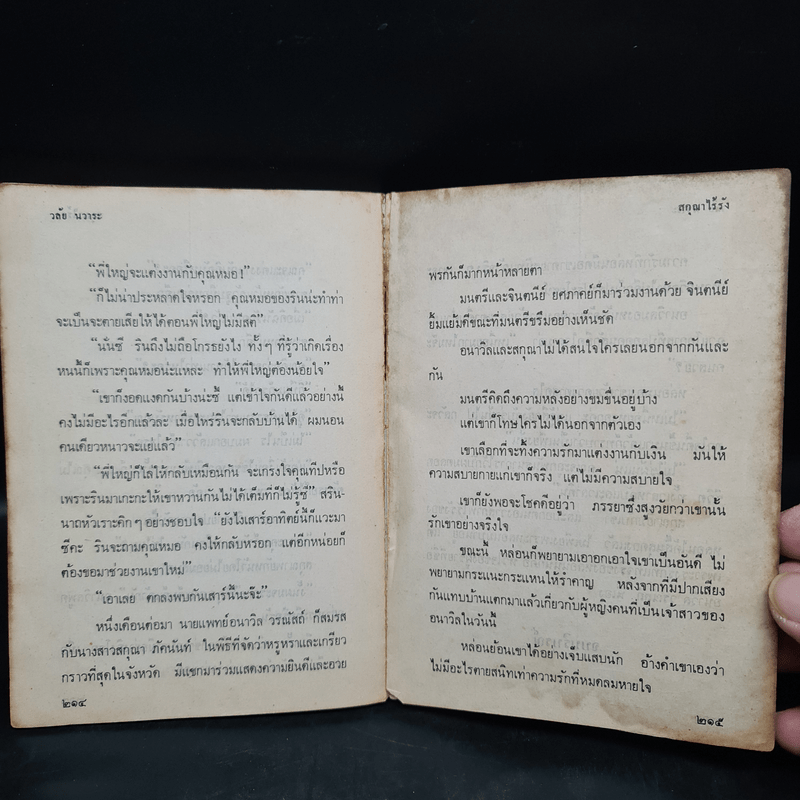 วลัย นวาระ
"พี่ใหญ่จะแต่งงานกับคุณหมอ!"
"ก็ไม่น่าประหลาดใจหรอก คุณหมอของรินน่ะทำท่า
จะเป็นจะตายเสียให้ได้ตอนพี่ใหญ่ไม่มีสติ"
"นั่นซี รินถึงไม่ถือโกรธยังไง ทั้งๆ ที่รู้ว่าเกิดเรื่อง
หนนี้ก็เพราะคุณหมอน่ะแหละ ทำให้พี่ใหญ่ต้องน้อยใจ"
"เขาก็งอดแงดกันบ้างน่ะซี แต่เข้าใจกันดีแล้วอย่างนี้
คงไม่มีอะไรอีกแล้วละ เมื่อไหร่รินจะกลับบ้านได้ ผมนอน
คนเดียวหนาวจะแย่แล้ว"
"พี่ใหญ่ก็ไล่ให้กลับเหมือนกัน จะเกรงใจคุณทีปหรือ
เพราะรินมาเกะกะให้เขาหวานกันไม่ได้เต็มที่ก็ไม่รู้ซี" สริน-
นาถหัวเราะคิกๆ อย่างชอบใจ "ยังไงเสาร์อาทิตย์นี้ก็แวะมา
ซีคะ รินจะถามคุณหมอ คงให้กลับหรอก แต่อีกหน่อยก็
ต้องขอมาช่วยงานเขาใหม่"
"เอาเลย ตกลงพบกันเสาร์นี้นะจ๊ะ"
หนึ่งเดือนต่อมา นายแพทย์อนาวิล วรณัสถ์ ก็สมรส
กับนางสาวสกุณา ภัคนันท์ ในพิธีที่จัดว่าหรูหราและเกรียว
กราวที่สุดในจังหวัด มีแขกมาร่วมแสดงความยินดีและอวย
๒๑๔
สกุณาไร้รัง
พรกันก็มากหน้าหลายตา
มนตรีและจินตนีย์ ยศภาคย์ก็มาร่วมงานด้วย จินตนีย์
ยิ้มแย้มดีขณะที่มนตรีขรึมอย่างเห็นชัด
อนาวิลและสกุณาไม่ได้สนใจใครเลยนอกจากกันและ
กัน
มนตรีคิดถึงความหลังอย่างขมขื่นอยู่บ้าง
แต่เขาก็โทษใครไม่ได้นอกจากตัวเอง
เขาเลือกที่จะทิ้งความรักมาแต่งงานกับเงิน มันให้
ความสบายกายแก่เขาก็จริง แต่ไม่มีความสบายใจ
เขาก็ยังพอจะโชคดีอยู่ว่า ภรรยาซึ่งสูงวัยกว่าเขานั้น
รักเขาอย่างจริงใจ
ขณะนี้ หล่อนก็พยายามเอาอกเอาใจเขาเป็นอันดี ไม่
พยายามกระแนะกระแหนให้รำคาญ หลังจากที่มีปากเสียง
กันแทบบ้านแตกมาแล้วเกี่ยวกับผู้หญิงคนที่เป็นเจ้าสาวของ
อนาวิลในวันนี้
หล่อนย้อนเขาได้อย่างเจ็บแสบนัก อ้างคำเขาเองว่า
ไม่มีอะไรตายสนิทเท่าความรักที่หมดลมหายใจ
๒๑๕